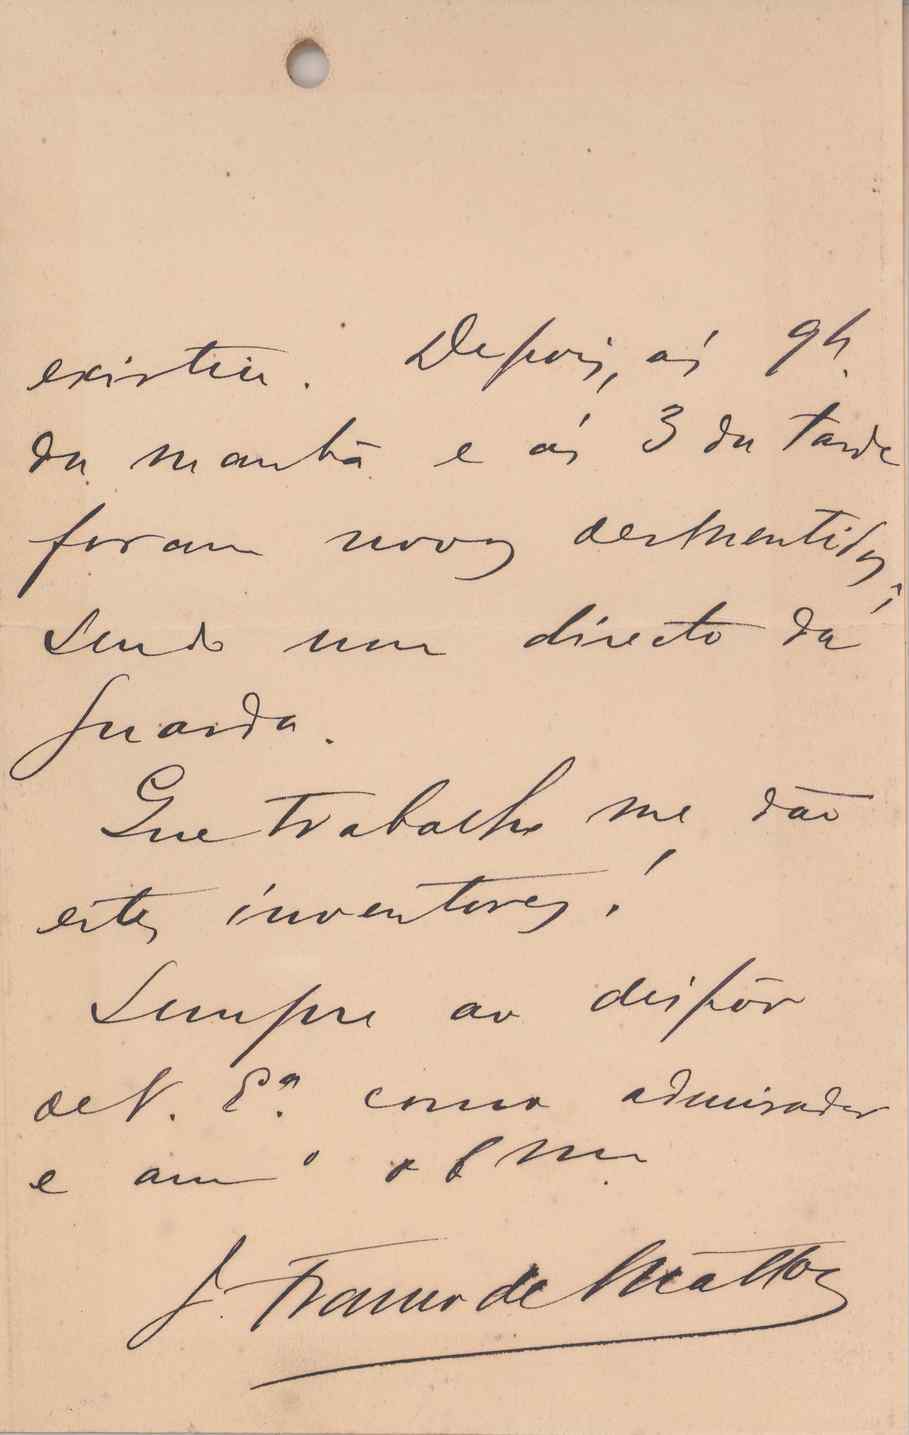 existiu. Depois, ás 9h.
da manhã e ás 3 da tarde
foram novos desmentidos,
sendo um directo da
Guarda.
Que trabalho me dão
estes inventores!
Sempre ao dispôr
de V. Eª. como admirador
e amº
J. Franco de Mattos